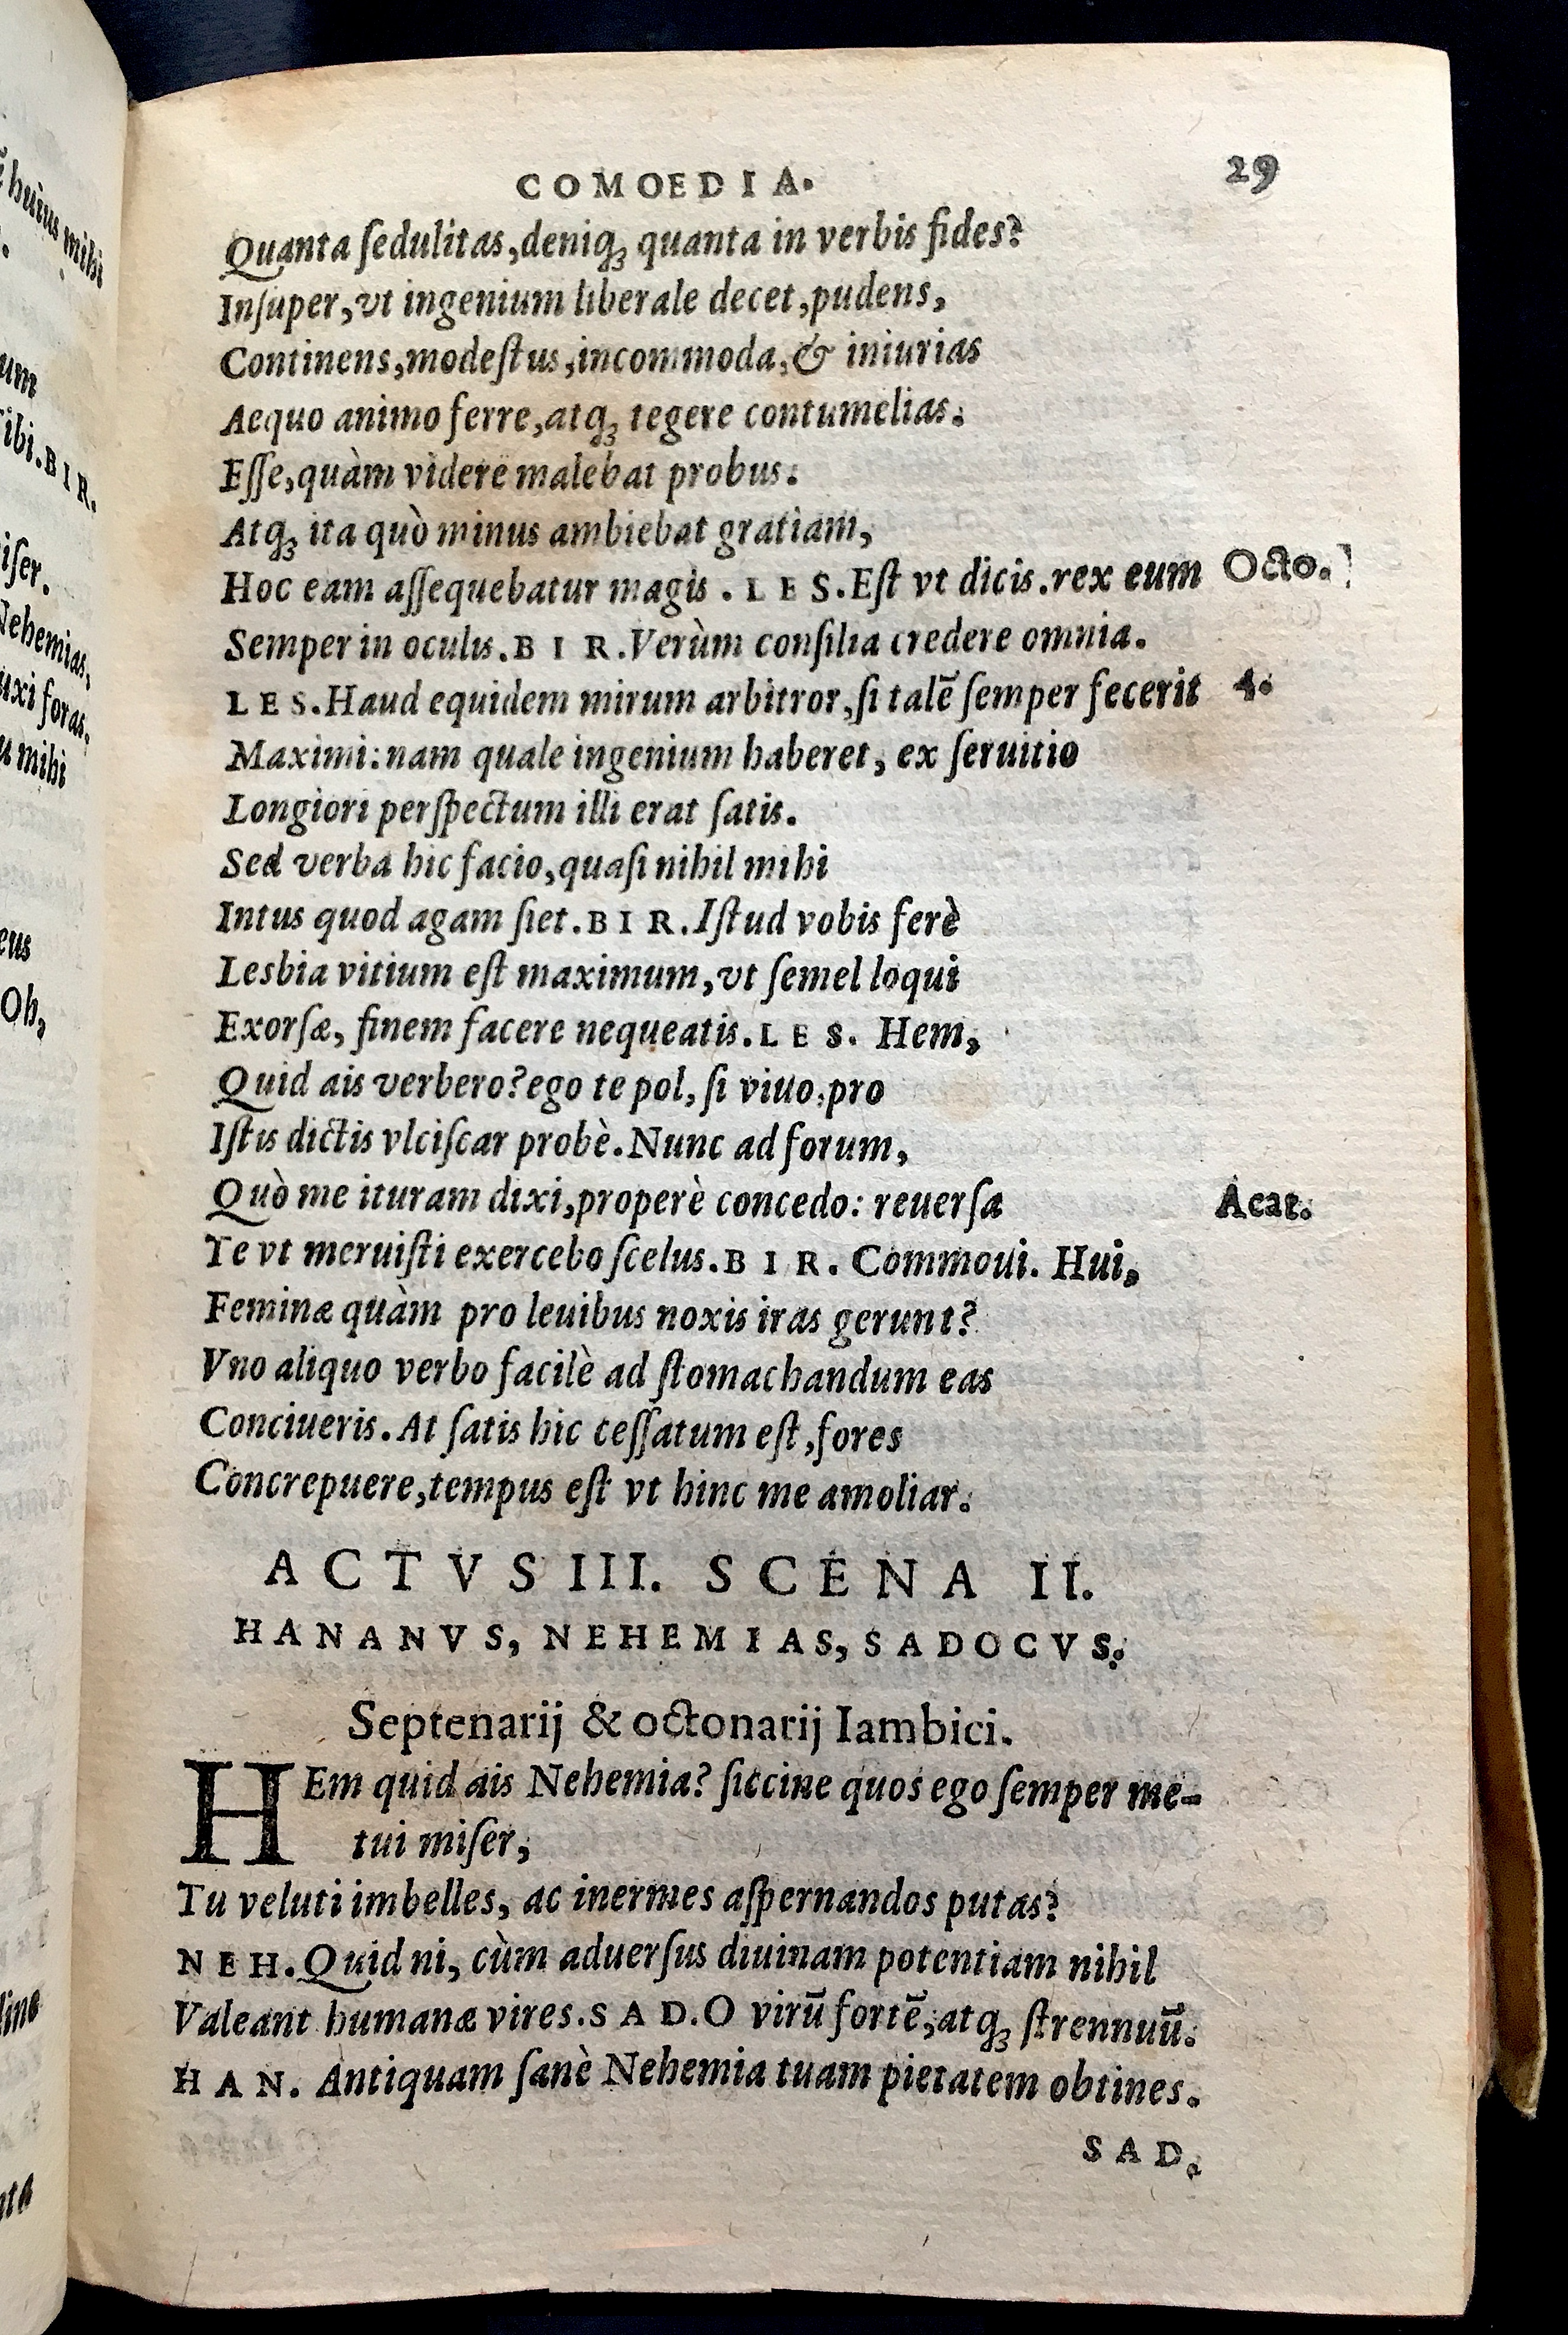 COMOEDIA. 29
Quanta ſedulitas, deniqꝫ quanta in verbis fides?
Inſuper, vt ingenium liberale decet, pudens,
Continens, modeſtus, incommoda, & iniurias
Aequo animo ferre, atqꝫ tegere contumelias.
Eſſe, quàm videre malebat probus.
Atqꝫ ita quò minus ambiebat gratiam,
Hoc eam aſſequebatur magis. LES. Eſt vt dicis. rex eum Octo.
Semper in oculis. BIR. Verùm conſilia credere omnia.
LES. Haud equidem mirum arbitror, ſi talē ſemper fecerit 4.
Maximi: nam quale ingenium haberet, ex ſeruitio
Longiori perſpectum illi erat ſatis.
Sed verba hic facio, quaſi nihil mihi
Intus quod agam ſiet. BIR. Iſtud vobis ferè
Lesbia vitium eſt maximum, vt ſemel loqui
Exorſæ, finem facere nequeatis. LES. Hem,
Quid ais verbero? ego te pol, ſi viuo, pro
Iſtis dictis vlciſcar probè. Nunc ad forum,
Quò me ituram dixi, properè concedo: reuerſa Acat.
Te vt meruiſti exercebo ſcelus. BIR. Commoui. Hui,
Feminæ quàm pro leuibus noxis iras gerunt?
Vno aliquo verbo facilè ad ſtomachandum eas
Conciueris. At ſatis hic ceſſatum eſt, fores
Concrepuere, tempus eſt vt hinc me amoliar.
ACTVS III. SCENA II.
HANANVS, NEHEMIAS, SADOCVS.
Septenarij & octonarij Iambici.
HEm quid ais Nehemia? ſiccine quos ego ſemper me-
tui miſer,
Tu veluti imbelles, ac inermes aſpernandos putas?
NEH. Quid ni, cùm aduerſus diuinam potentiam nihil
Valeant humanæ vires. SAD. O virū fortē, atqꝫ ſtrennuū.
HAN. Antiquam ſanè Nehemia tuam pietatem obtines.
SAD.